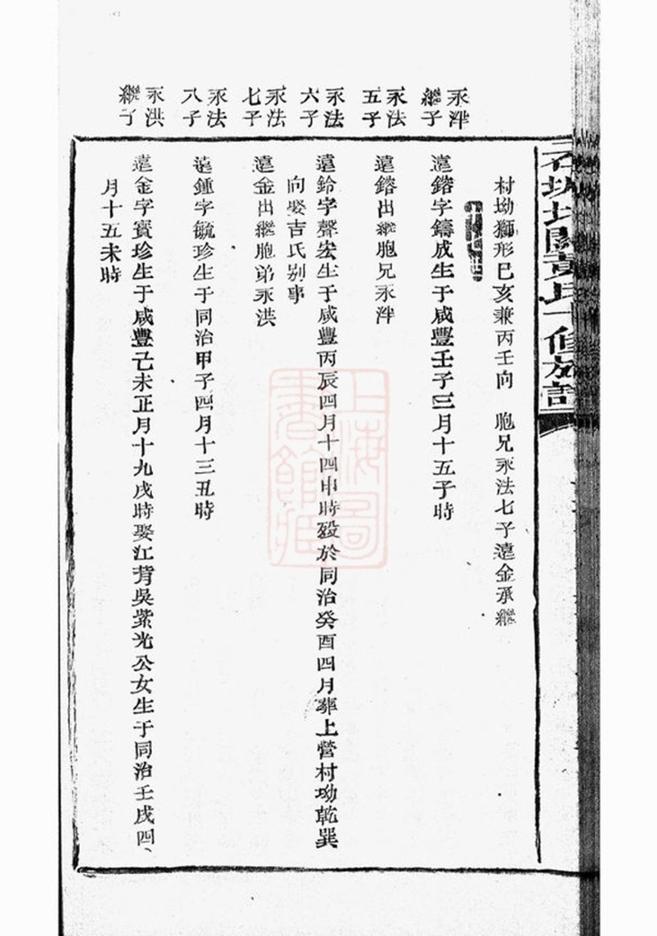 村坳獅形巳亥兼丙壬向 胞兄永法七子遠金承繼
永泮
繼子
遠鍇字鑄成生于咸豐壬子三月十五子時
永法
五子
遠鍇出繼胞兄永泮
永法
六子
遠鈴字聲宏生于咸豐丙辰四月十四申時殁於同治癸酉四月葬上營村坳乾巽
向娶吉氏别事
永法
七子
遠金出繼胞弟永洪
永法
八子
遠鍾字毓珍生于同治甲子四月十三丑時
永洪
繼子
遠金字寶珍生于咸豐己未正月十九戌時娶江背吳紫光公女生于同治壬戌四
月十五未時
上海圖書館藏